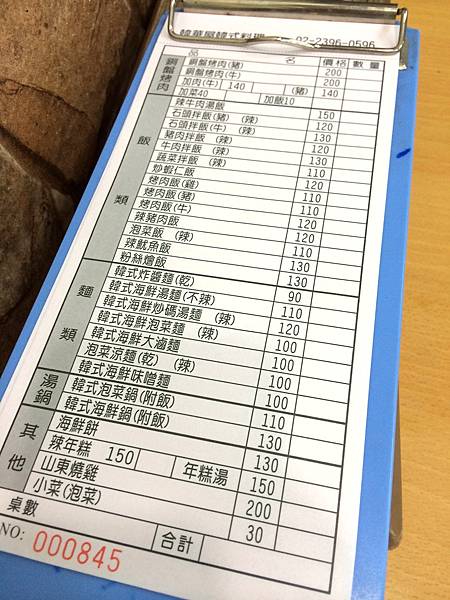 韓式料理 02-2396-0596
品 名 價格 數量
銅盤烤肉
銅盤烤肉(豬) 200
銅盤烤肉(牛) 200
加肉(牛) 140 (豬) 140
加菜40 加飯10
飯類
辣牛肉湯飯 150
石頭拌飯(豬) (辣) 120
石頭拌飯(牛) (辣) 130
豬肉拌飯 (辣) 120
牛肉拌飯 (辣) 130
蔬菜拌飯 (辣) 110
炒蝦仁飯 120
烤肉飯(雞) 110
烤肉飯(豬) 110
烤肉飯(牛) 120
辣豬肉飯 120
泡菜飯 (辣) 110
辣魷魚飯 130
粉絲燴飯 130
麵類
韓式炸醬麵(乾) 90
韓式海鮮湯麵(不辣) 110
韓式海鮮炒碼湯麵 (辣) 120
韓式海鮮泡菜麵 (辣) 100
韓式海鮮大滷麵 100
泡菜涼麵(乾) (辣) 100
韓式海鮮味噌麵 100
湯鍋
韓式泡菜鍋(附飯) 110
韓式海鮮鍋(附飯) 130
其他
海鮮餅 130
辣年糕 150 年糕湯 150
山東燒雞 200
小菜(泡菜) 30
桌數 合計
NO: 000845